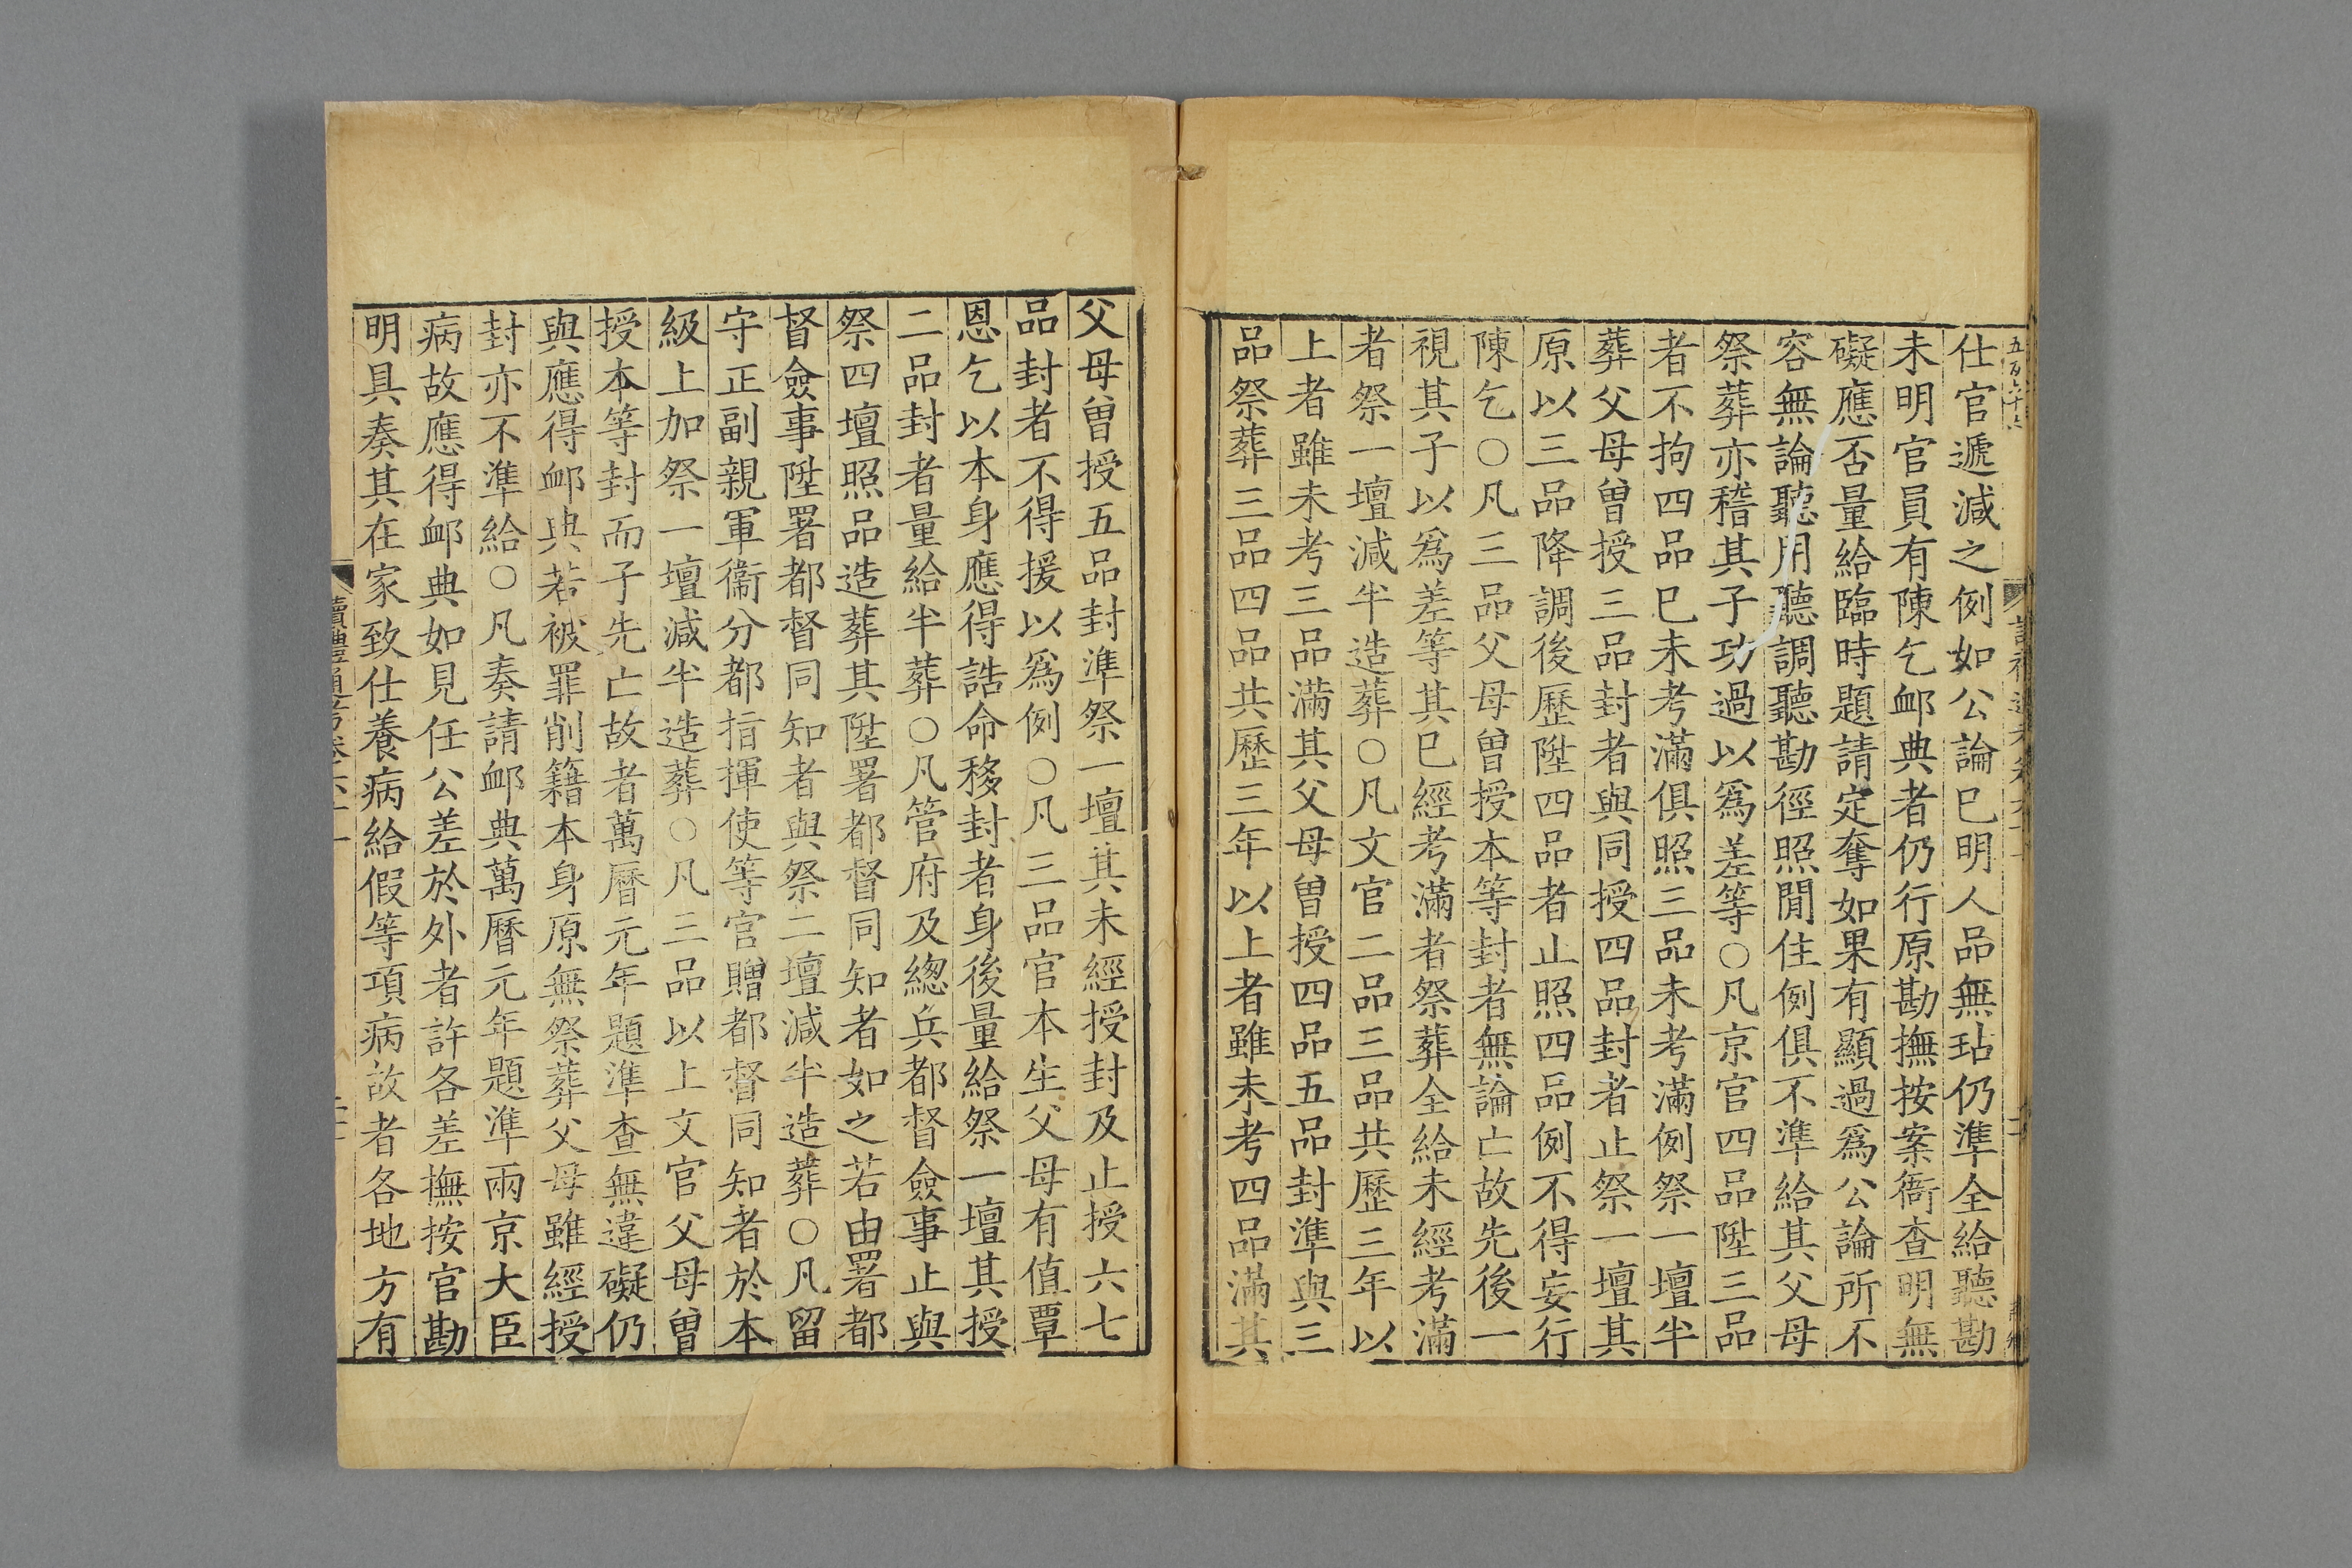 仕官遞減之例如公論已明人品無玷仍準全給聽勘
未明官員有陳乞䘏典者仍行原勘撫按案衙查明無
礙應否量給臨時題請定奪如果有顯過爲公論所不
容無論聽用聽調聽勘徑照閒住例俱不準給其父母
祭葬亦稽其子功過以爲差等○凡京官四品陞三品
者不拘四品已未考滿俱照三品未考滿例祭一壇半
葬父母曾授三品封者與同授四品封者止祭一壇其
原以三品降調後歷陞四品者止照四品例不得妄行
陳乞○凡三品父母曾授本等封者無論亡故先後一
視其子以爲差等其已經考滿者祭葬全給未經考滿
者祭一壇減半造葬○凡文官二品三品共歷三年以
上者雖未考三品滿其父母曾授四品五品封準與三
品祭葬三品四品共歷三年以上者雖未考四品滿其
父母曾授五品封準祭一壇其未經授封及止授六七
品封者不得援以爲例○凡三品官本生父母有值覃
恩乞以本身應得誥命移封者身後量給祭一壇其授
二品封者量給半葬○凡管府及總兵都督僉事止與
祭四壇照品造葬其陞署都督同知者如之若由署都
督僉事陞署都督同知者與祭二壇減半造葬○凡留
守正副親軍衞分都指揮使等官贈都督同知者於本
級上加祭一壇減半造葬○凡三品以上文官父母曾
授本等封而子先亡故者萬曆元年題準查無違礙仍
與應得䘏典若被罪削籍本身原無祭葬父母雖經授
封亦不準給○凡奏請䘏典萬曆元年題準兩京大臣
病故應得䘏典如見任公差於外者許各差撫按官勘
明具奏其在家致仕養病給假等項病故者各地方有